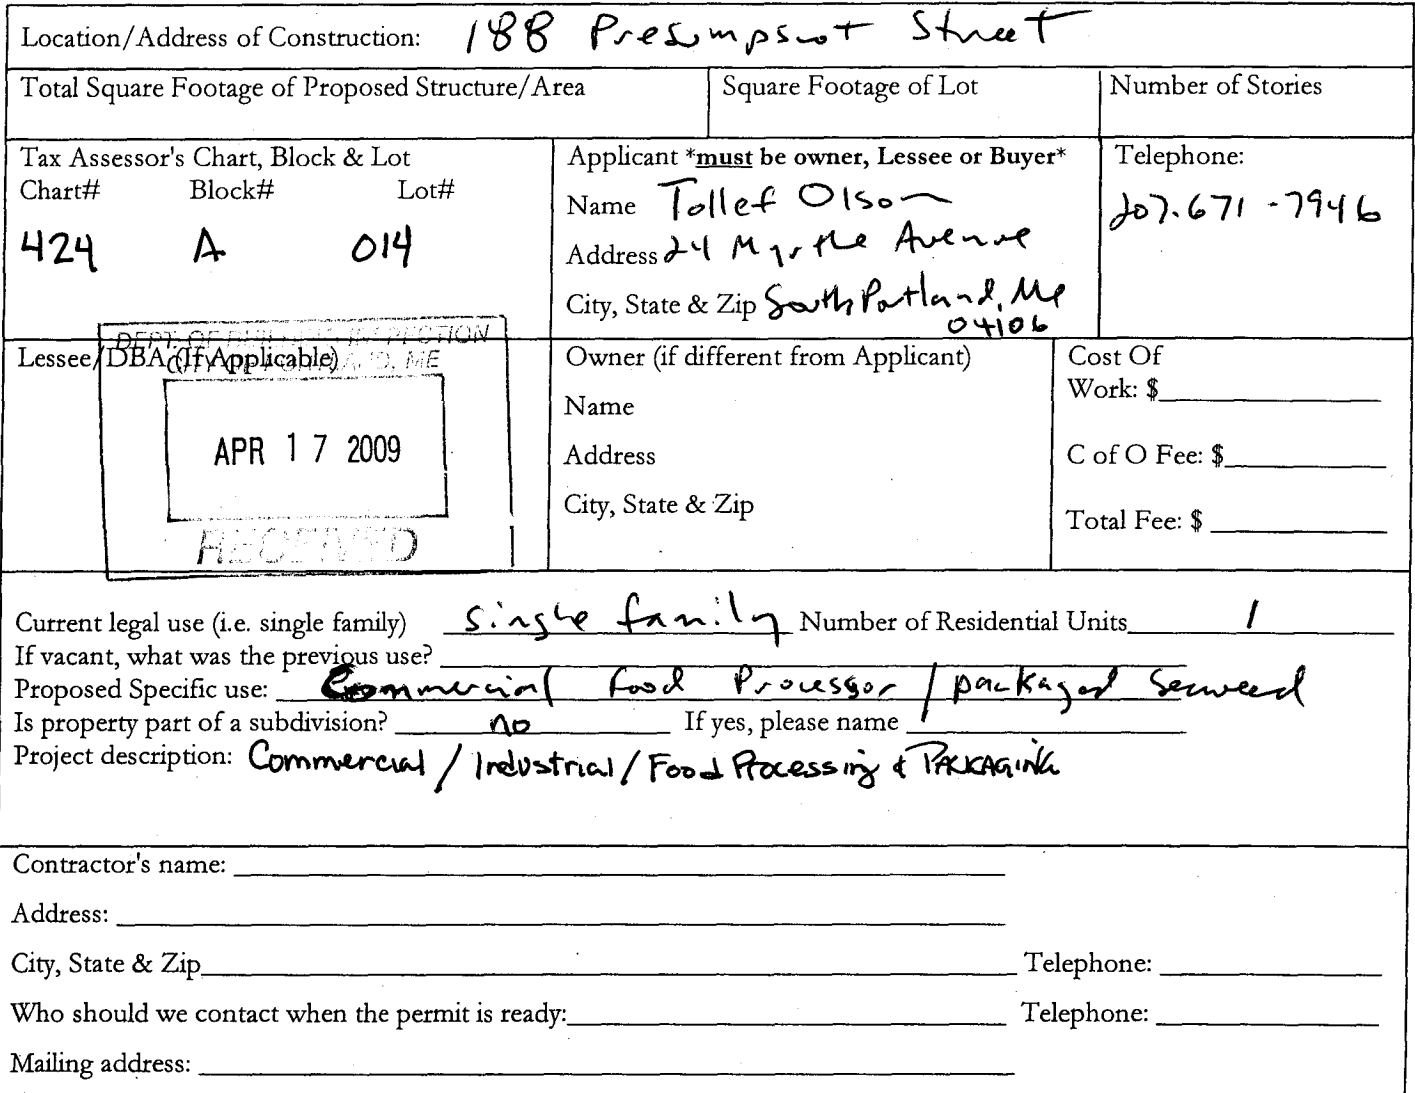 Location/Address of Construction: 188 Presumpscot Street
Total Square Footage of Proposed Structure/Area Square Footage of Lot Number of Stories
Tax Assessor's Chart, Block & Lot
Chart# Block# Lot#
424 A 014
Applicant *must be owner, Lessee or Buyer*
Name Tollef Olson
Address 24 Myrtle Avenue
City, State & Zip South Portland, Me
04106
Telephone:
207.671-7946
DEPT. OF BUILDING INSPECTION
CITY OF PORTLAND, ME
Lessee/DBA (If Applicable)
APR 17 2009
RECEIVED
Owner (if different from Applicant)
Name
Address
City, State & Zip
Cost Of
Work: $
C of O Fee: $
Total Fee: $
Current legal use (i.e. single family) single family Number of Residential Units 1
If vacant, what was the previous use?
Proposed Specific use: Commercial Food Processor / packaged Seaweed
Is property part of a subdivision? no If yes, please name
Project description: Commercial / Industrial / Food Processing & PACKAGING
Contractor's name:
Address:
City, State & Zip Telephone:
Who should we contact when the permit is ready: Telephone:
Mailing address: